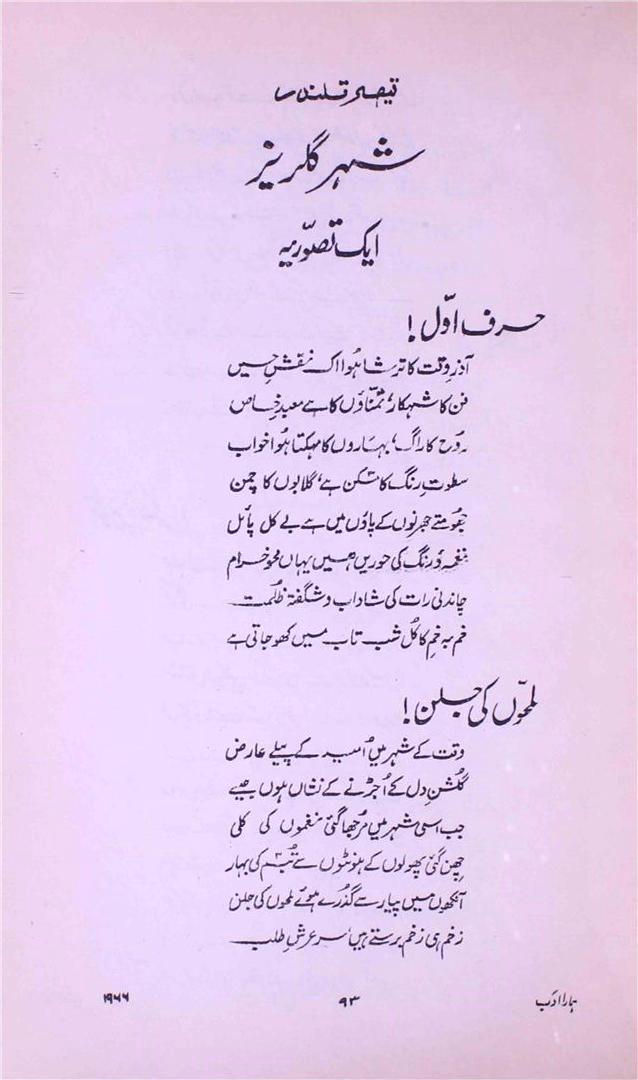 قیصر قلندر
شہر گلریز
ایک تصوّریہ
حرف اوّل!
آذرِ وقت کا ترشا ہُوا اک نقشِ حسیں
فن کا شہکار، تمنّاؤں کا ہے معبدِ خاص
رُوح کا راگ، بہاروں کا مہکتا ہُوا خواب
سطوتِ رنگ کا مسکن ہے، گلابوں کا چمن
جھومتے جھرنوں کے پاؤں میں ہے بے کل پائل
نغمہ و رنگ کی حوریں ہیں یہاں محوِ خرام
چاندنی رات کی شاداب و شگفتہ ظلمت
خم بہ خم کاکُلِ شب تاب میں کھو جاتی ہے
لمحوں کی جلن!
وقت کے شہر میں اُمید کے پیلے عارض
گلشنِ دل کے اُجڑنے کے نشاں ہوں جیسے
جب اسی شہر میں مُرجھا گئی نغموں کی کلی
چھن گئی پھولوں کے ہونٹوں سے تبسّم کی بہار
آنکھوں میں پیار سے گذرے ہوئے لمحوں کی جلن
زخم ہی زخم برستے ہیں سرِ عرشِ طلب
ہمارا ادب
۹۳
۱۹۶۶